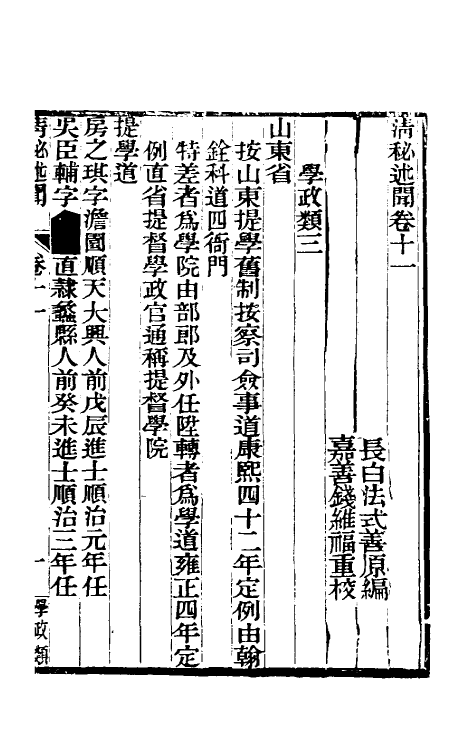 清秘述聞卷十一
長白法式善原編
嘉善錢維福重校
學政類三
山東省
按山東提學舊制按察司僉事道康熙四十二年定例由翰
詮科道四衙門
特差者為學院由部郎及外任陞轉者為學道雍正四年定
例直省提督學政官通稱提督學院
提學道
房之琪字澹園順天大興人前戊辰進士順治元年任
吳臣輔字 直隸蠡縣人前癸未進士順治三年任
清秘述聞 卷十一 一 學政類